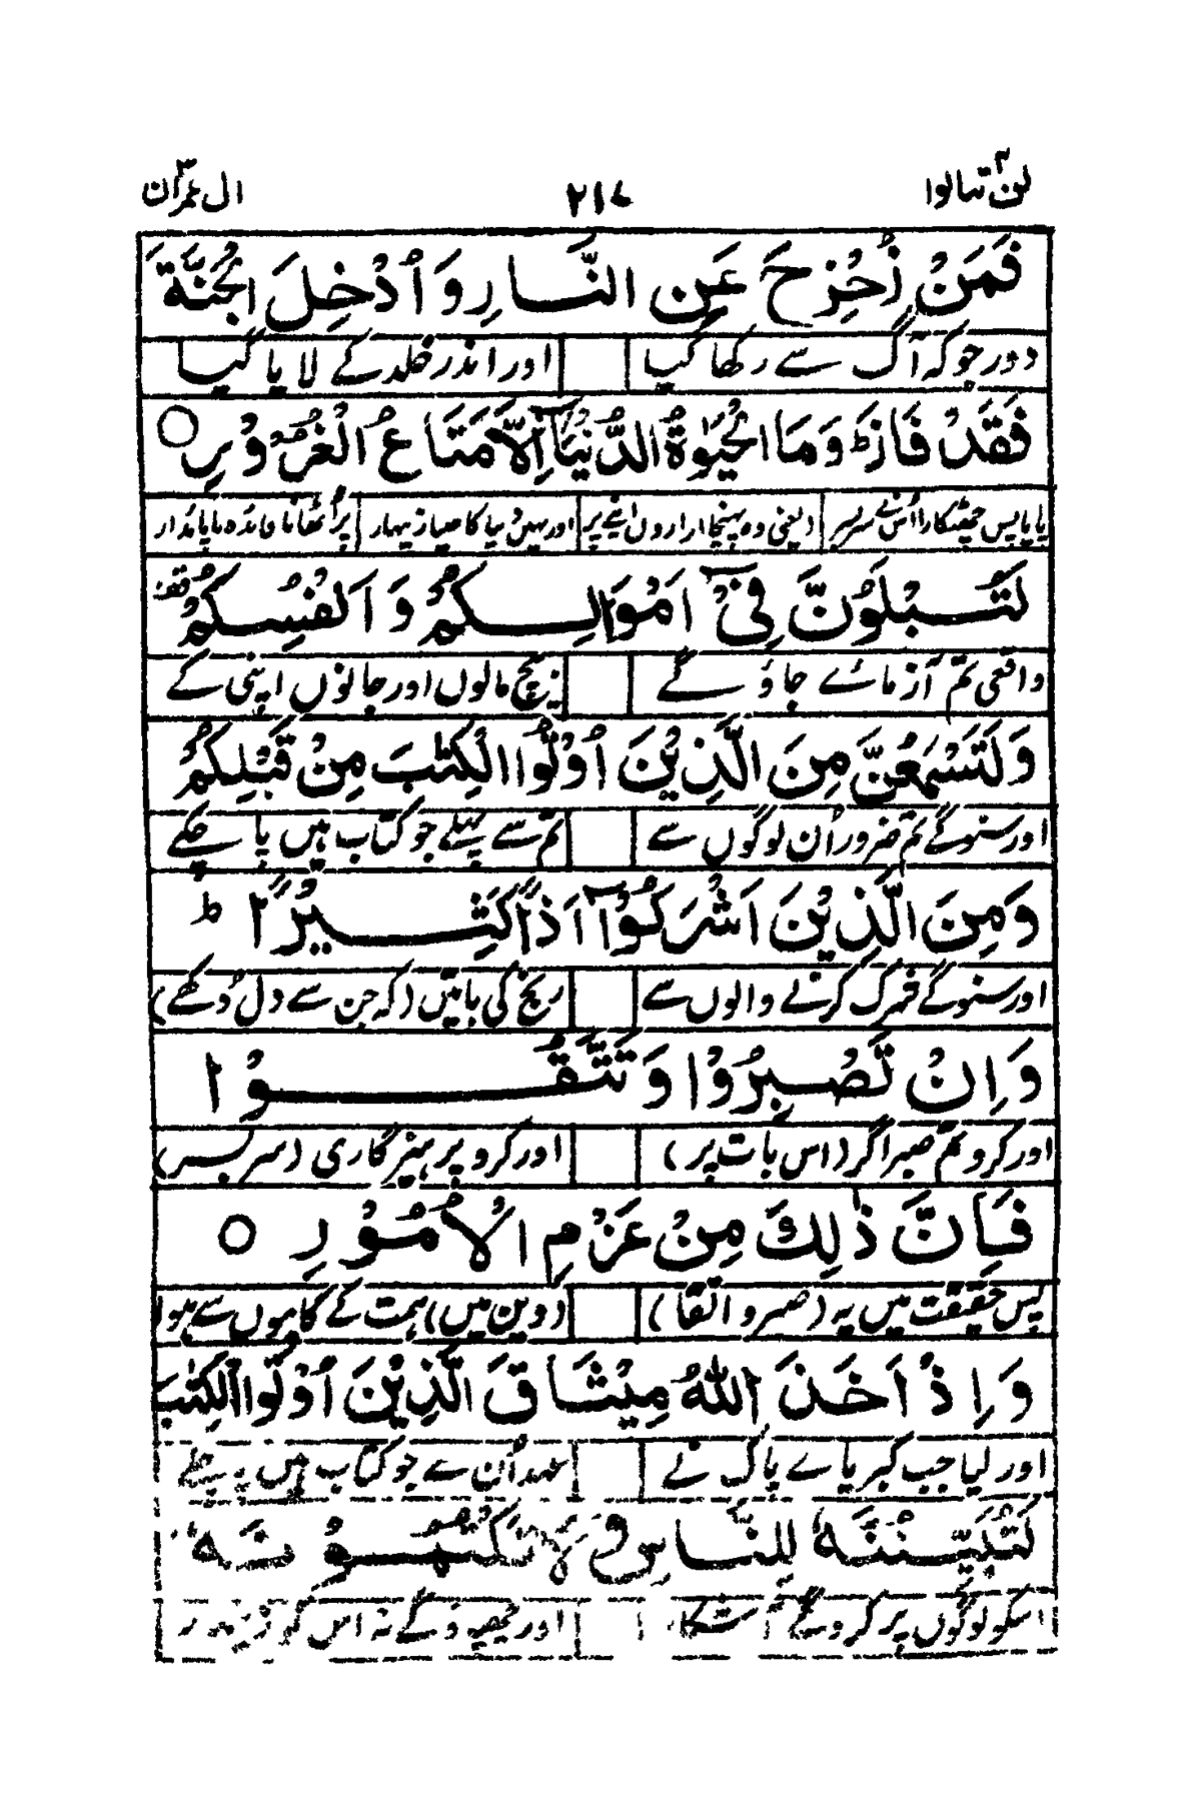 لن تنالوا ۴ ۲۱۷ ال عمران ۳
فَمَنْ زُحْزِحَ عَنِ النَّارِ وَ اُدْخِلَ الْجَنَّةَ
دور جو کہ آگ سے رکھا گیا اور اندر خلد کے لا یا گیا
فَقَدْ فَازَ ؕ وَ مَا الْحَيٰوةُ الدُّنْيَآ اِلَّا مَتَاعُ الْغُرُوْرِ ○
پایا پس چھٹکارا اُس نے سربسر (یعنی وہ پہنچا ارادوں اپنے پر اور نہیں دنیا کا جینا زینہار پر اُٹھانا فائدہ ناپائدار
لَتُبْلَوُنَّ فِيْٓ اَمْوَالِكُمْ وَ اَنْفُسِكُمْ
واقعی تم آزمائے جاؤ گے بیچ مالوں اور جانوں اپنی کے
وَ لَتَسْمَعُنَّ مِنَ الَّذِيْنَ اُوْتُوا الْكِتٰبَ مِنْ قَبْلِكُمْ
اور سنو گے تم ضرور اُن لوگوں سے تم سے پہلے جو کتاب ہیں پا چکے
وَ مِنَ الَّذِيْنَ اَشْرَكُوْٓا اَذًى كَثِيْرًا ؕ
اور سنو گے شرک کرنے والوں سے رنج کی باتیں (کہ جن سے دل دُکھے)
وَ اِنْ تَصْبِرُوْا وَ تَتَّقُوْا
اور کرو تم صبر اگر (اس بات پر) اور کرو پرہیزگاری (سربسر)
فَاِنَّ ذٰلِكَ مِنْ عَزْمِ الْاُمُوْرِ ○
پس حقیقت میں یہ (صبر و اتقا) (دین میں) ہمت کے کاموں سے ہوا
وَ اِذْ اَخَذَ اللّٰهُ مِيْثَاقَ الَّذِيْنَ اُوْتُوا الْكِتٰبَ
اور لیا جب کبریائے پاک نے عہد اُن سے جو کتاب ہیں پا چکے
لَتُبَيِّنُنَّهٗ لِلنَّاسِ وَ لَا تَكْتُمُوْنَهٗ
اسکو لوگوں پر کرو گے آشکار اور چھپاؤ گے نہ اس کو زینہار